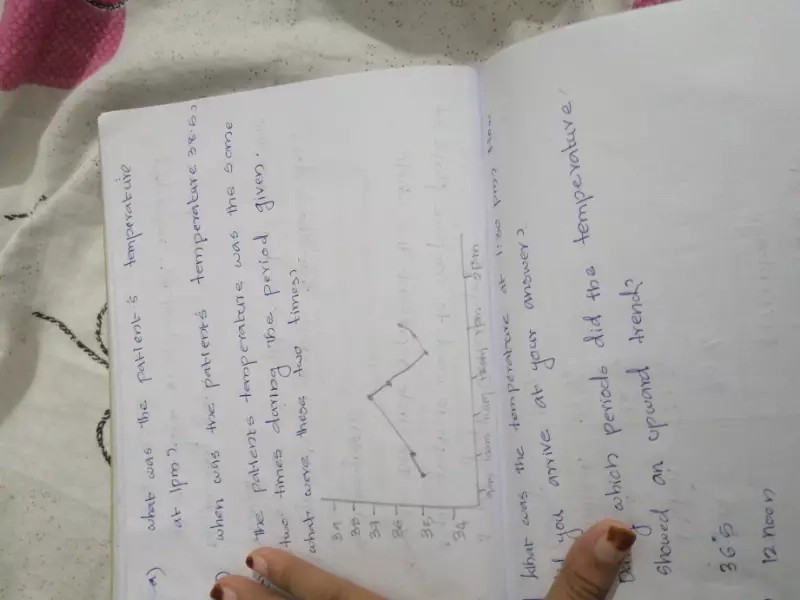 a) what was the patient's temperature
at 1pm?
when was the patient's temperature 38.5?
The patient's temperature was the same
two times during the period given.
what were these two times?
39
38
37
36
35
34
9am 10am 11am 1pm 2pm
What was the temperature at
you arrive at your answer?
which periods did the temperature
showed an upward trend?
36.5
12 noon